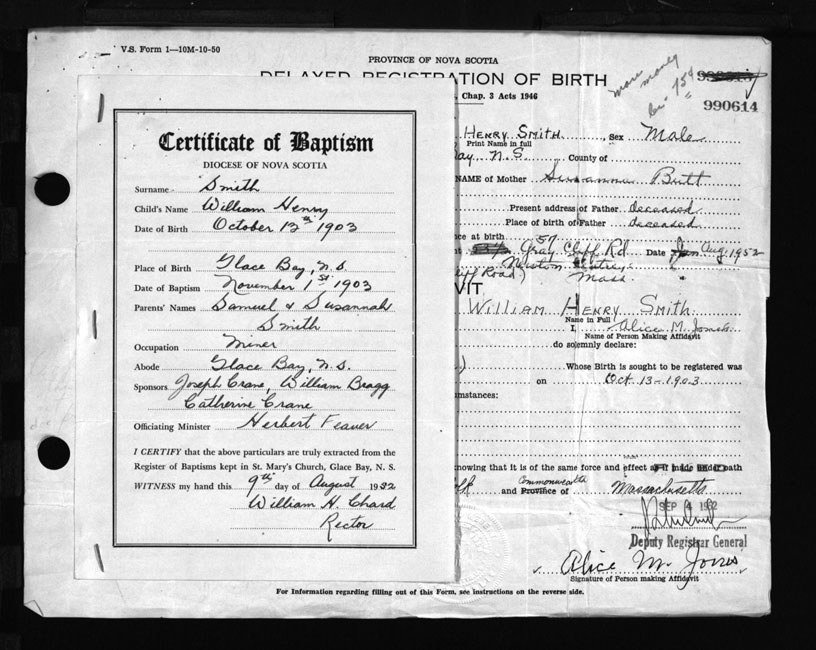 V.S. Form 1—10M-10-50
PROVINCE OF NOVA SCOTIA
DELAYED REGISTRATION OF BIRTH
Chap. 3 Acts 1946
more money
15¢
990614
Certificate of Baptism
DIOCESE OF NOVA SCOTIA
Surname Smith
Child's Name William Henry
Date of Birth October 13th 1903
Place of Birth Glace Bay, N.S.
Date of Baptism November 1st 1903
Parents' Names Samuel & Susannah
Smith
Occupation Miner
Abode Glace Bay, N.S.
Sponsors Joseph Crane, William Bragg
Catherine Crane
Officiating Minister Herbert Feaver
I CERTIFY that the above particulars are truly extracted from the
Register of Baptisms kept in St. Mary's Church, Glace Bay, N. S.
WITNESS my hand this 9th day of August 1932
William H. Chard
Rector
HENRY SMITH, Sex Male
Print Name in full
ay N.S. County of
NAME OF Mother Susanna Butt
Present address of Father deceased
Place of birth of Father deceased
ce at birth
57 Gray Cliff Rd Date Aug. 1952
Newton
liff Road) Mass.
VIT
WILLIAM HENRY SMITH
Name in Full
I, Alice M. Jones
Name of Person Making Affidavit
do solemnly declare:
Whose Birth is sought to be registered was
on Oct 13-1903
mstances:
nowing that it is of the same force and effect as if made under oath
Commonwealth
and Province of Massachusetts
SEP 4 1952
Deputy Registrar General
Alice M. Jones
Signature of Person making Affidavit
For Information regarding filling out of this Form, see instructions on the reverse side.